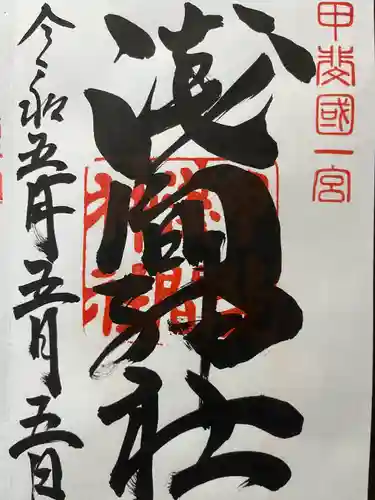 甲斐國一宮
淺間神社
令和五年五月五日